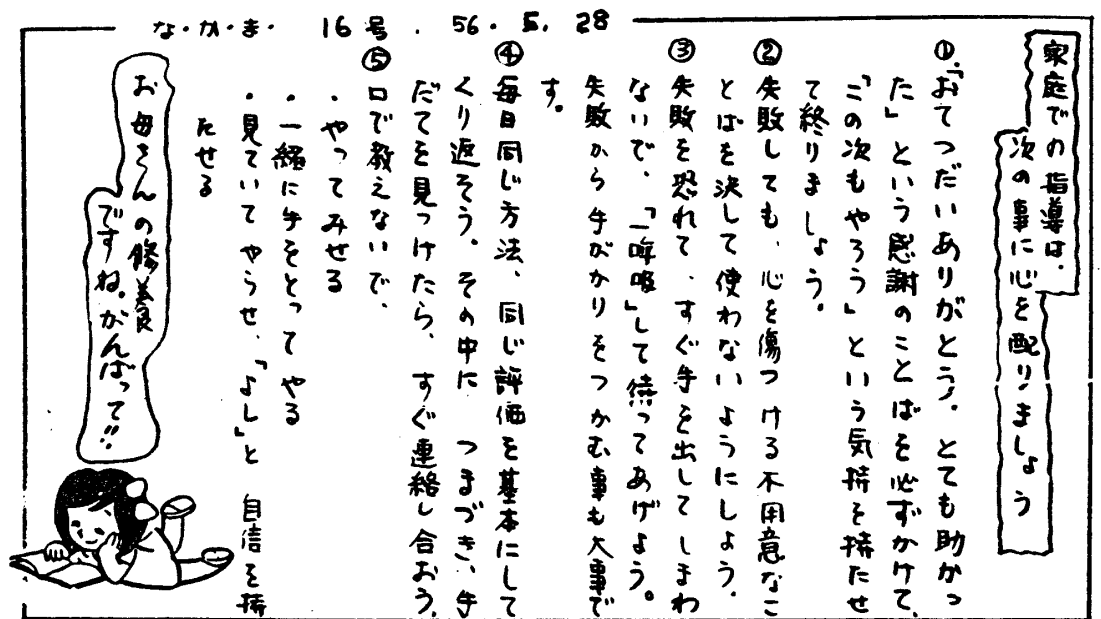 な・か・ま・ 16号. 56. 5. 28
家庭での指導は、
次の事に心を配りましょう
①「おてつだいありがとう。とても助かっ
た」という感謝のことばを必ずかけて、
「この次もやろう」という気持を持たせ
て終りましょう。
②失敗しても、心を傷つける不用意なこ
とばを決して使わないようにしよう。
③失敗を恐れて、すぐ手を出してしまわ
ないで、「一呼吸」して待ってあげよう。
失敗から手がかりをつかむ事も大事で
す。
④毎日同じ方法、同じ評価を基本にして
くり返そう。その中に つまづき、手
だてを見つけたら、すぐ連絡し合おう。
⑤口で教えないで、
・やってみせる
・一緒に手をとってやる
・見ていてやらせ、「よし」と 自信を持
たせる
お母さんの修養
ですね。がんばって!!